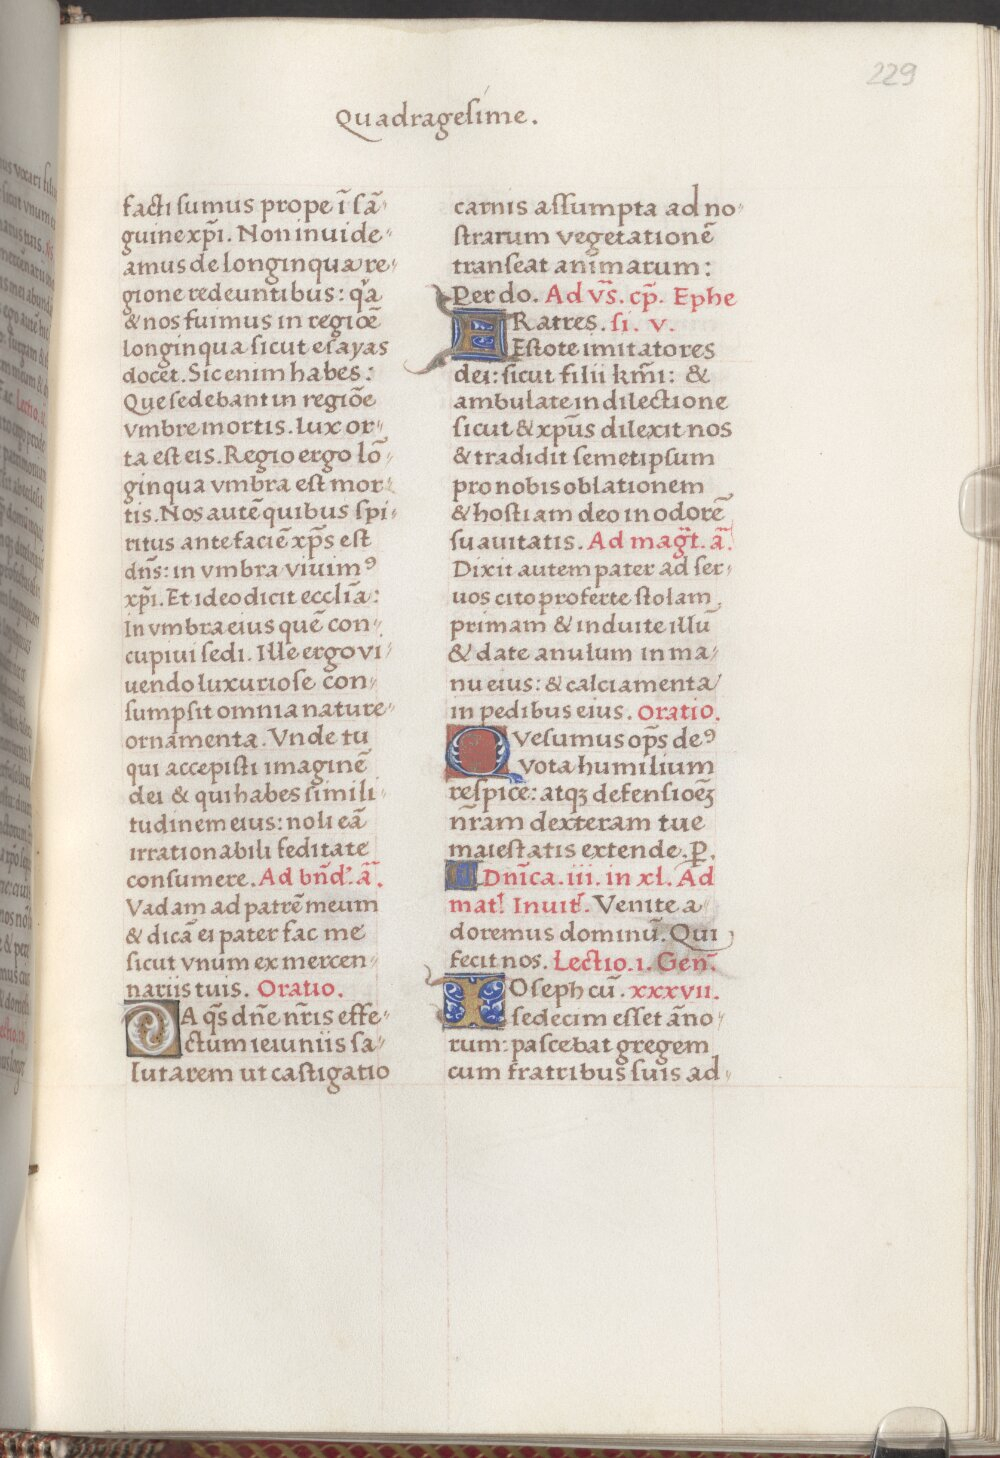 229
Quadragesime.
facti sumus prope ī sā
guine xp̄i. Non inuide
amus de longinqua re
gione redeuntibus: q̄a
& nos fuimus in regiōe
longinqua sicut esayas
docet. Sic enim habes:
Que sedebant in regiōe
vmbre mortis. lux or
ta est eis. Regio ergo lō
ginqua vmbra est mor
tis. Nos autē quibus spi
ritus ante faciē xp̄s est
dn̄s: in vmbra viuimꝰ
xp̄i. Et ideo dicit ecclīa:
In vmbra eius quē con
cupiui sedi. Ille ergo vi
uendo luxuriose con
sumpsit omnia nature
ornamenta. Vnde tu
qui accepisti imaginē
dei & qui habes simili
tudinem eius: noli eā
irrationabili feditate
consumere. Ad bn̄d. ā.
Vadam ad patrē meum
& dicā ei pater fac me
sicut vnum ex mercen
nariis tuis. Oratio.
DA qs̄ dn̄e nr̄is effe
ctum ieiuniis sa
lutarem ut castigatio
carnis assumpta ad no
strarum vegetationē
transeat animarum:
Per do. Ad vs̄. cp̄. Ephe
FRatres. si. v.
Estote imitatores
dei: sicut filii km̄i: &
ambulate in dilectione
sicut & xpūs dilexit nos
& tradidit semetipsum
pro nobis oblationem
& hostiam deo in odorē
suauitatis. Ad mag̃t. ā.
Dixit autem pater ad ser
uos cito proferte stolam
primam & induite illū
& date anulum in ma
nu eius: & calciamenta
in pedibus eius. Oratio.
QVesumus op̄s deꝰ
vota humilium
respice: atqꝫ defensioēꝫ
nr̄am dexteram tue
maiestatis extende. P̱.
Dn̄ica. iii. in xl. Ad
mat. Inuit. Venite a
doremus dominū. Qui
fecit nos. Lectio. 1. Gen̄.
IOseph cū. xxxvii.
sedecim esset āno
rum: pascebat gregem
cum fratribus suis ad